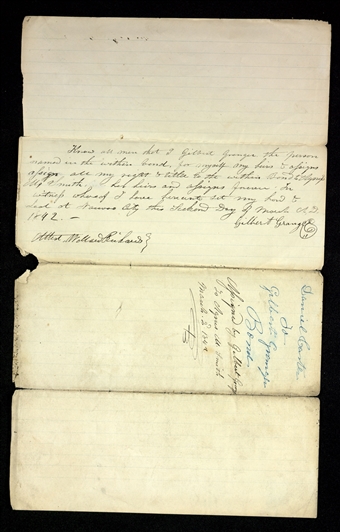 Know all men that I Gilbert Granger the person
named in the within bond, for myself my heirs & assigns
assign all my right & title to the within Bond to
Smith, her heirs and assigns forever. In
witness whereof I have hereunto set my hand &
seal at Nauvoo City this second day of March A.D.
1842. —
Gilbert Granger
Attest Willard Richards
Daniel Carter
To
Gilbert Granger
Bond
Assigned by Gilbert
To Agnes M Smith
March 2d 1842